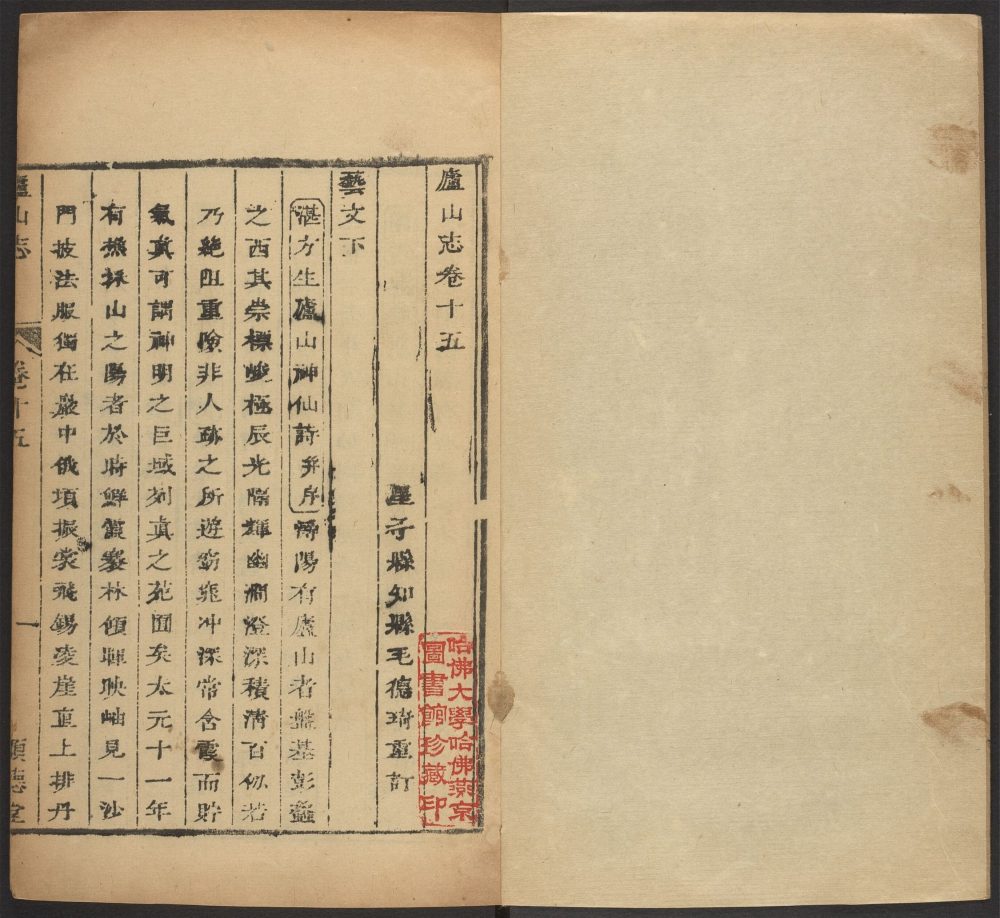 廬山志卷十五
星子縣知縣毛德琦重訂
藝文下
湛方生廬山神仙詩并序潯陽有廬山者盤基彭蠡
之西其崇標峻極辰光隔輝幽澗澄深積清百仞若
乃絶阻重險非人跡之所遊窈窕冲深常含霞而貯
氣真可謂神明之巨域列真之苑囿矣太元十一年
有樵採山之陽者於時鮮霞褰林傾暉映岫見一沙
門披法服獨在巖中俄頃振裳飛錫凌崖直上排丹
廬山志
卷十五
一
順德堂
哈佛大學哈佛燕京
圖書館珍藏印